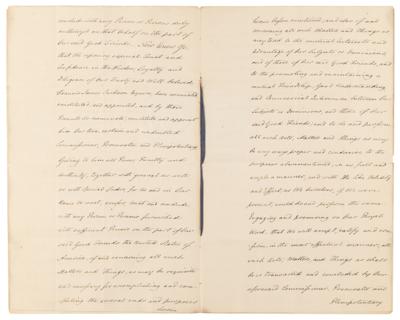 vested with any Person or Persons duly
authorized on that behalf on the part of
her said Good Friends. Now know Ye
that We reposing especial Trust and
Confidence in the Wisdom, Loyalty and
Diligence of Our Trusty and Well beloved
Francis James Jackson Esquire, have nominated
constituted and appointed, and by these
Presents do nominate, constitute and appoint
him Our true, certain and undoubted
Commissioner, Procurator and Plenipotentiary
Giving to him all Power, Faculty and
Authority, together with general as well
as with special Order, for Us and in Our
Name to meet, confer, treat and conclude
with any Person or Persons furnished
with sufficient Powers on the part of Our
said Good Friends the United States of
America, of and concerning all such
Matters and Things, as may be requisite
and necessary for accomplishing and com-
pleting the several ends and purposes
herein
herein before mentioned, and also of and
concerning all such Matters and Things as
may tend to the mutual Interests and
Advantage of Our Subjects &amp; Dominions,
and of those of Our said Good Friends, and
to the promoting and maintaining a
mutual Friendship, Good Understanding
and Commercial Intercourse between Our
Subjects &amp; Dominions, and those of Our
said Good Friends; and to do and perform
all such Acts, Matters and Things as may
be any ways proper and conducive to the
purposes abovementioned, in as full and
ample a manner, and with the like Validity
and Effect, as We Ourselves, if We were
present, could do and perform the same.
Engaging and promising on Our Royal
Word, that We will accept, ratify and con-
firm, in the most effectual manner, all
such Acts, Matters, and Things as shall
be so transacted and concluded by Our
aforesaid Commissioner, Procurator and
Plenipotentiary